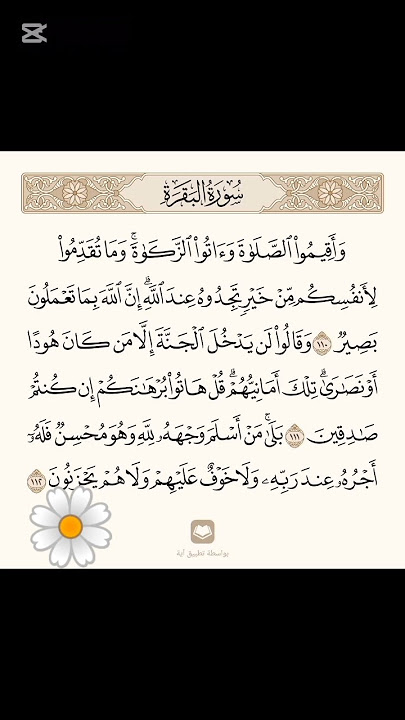 سُورَةُ البَقَرَةِ
وَأَقِيمُوا۟ ٱلصَّلَوٰةَ وَءَاتُوا۟ ٱلزَّكَوٰةَۚ وَمَا تُقَدِّمُوا۟
لِأَنفُسِكُم مِّنْ خَيْرٍ تَجِدُوهُ عِندَ ٱللَّهِۗ إِنَّ ٱللَّهَ بِمَا تَعْمَلُونَ
بَصِيرٌ ١١٠ وَقَالُوا۟ لَن يَدْخُلَ ٱلْجَنَّةَ إِلَّا مَن كَانَ هُودًا
أَوْ نَصَٰرَىٰۗ تِلْكَ أَمَانِيُّهُمْۗ قُلْ هَاتُوا۟ بُرْهَٰنَكُمْ إِن كُنتُمْ
صَٰدِقِينَ ١١١ بَلَىٰۚ مَنْ أَسْلَمَ وَجْهَهُۥ لِلَّهِ وَهُوَ مُحْسِنٌ فَلَهُۥٓ
أَجْرُهُۥ عِندَ رَبِّهِۦ وَلَا خَوْفٌ عَلَيْهِمْ وَلَا هُمْ يَحْزَنُونَ ١١٢
بواسطة تطبيق آية